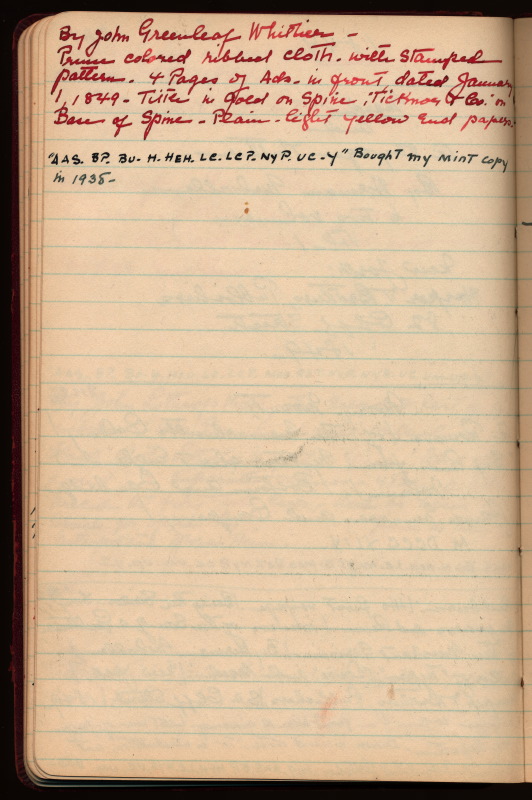 By John Greenleaf Whittier -
Prune colored ribbed cloth. with Stamped
pattern. 4 Pages of Ads. in front dated January
1, 1849 - Title in gold on Spine. "Ticknor & Co." on
Base of Spine - Plain - light yellow End papers.
"AAS. BP. BU- H- HEH. LC. LCP. NYP. UC - Y" Bought my mint copy
in 1935 -